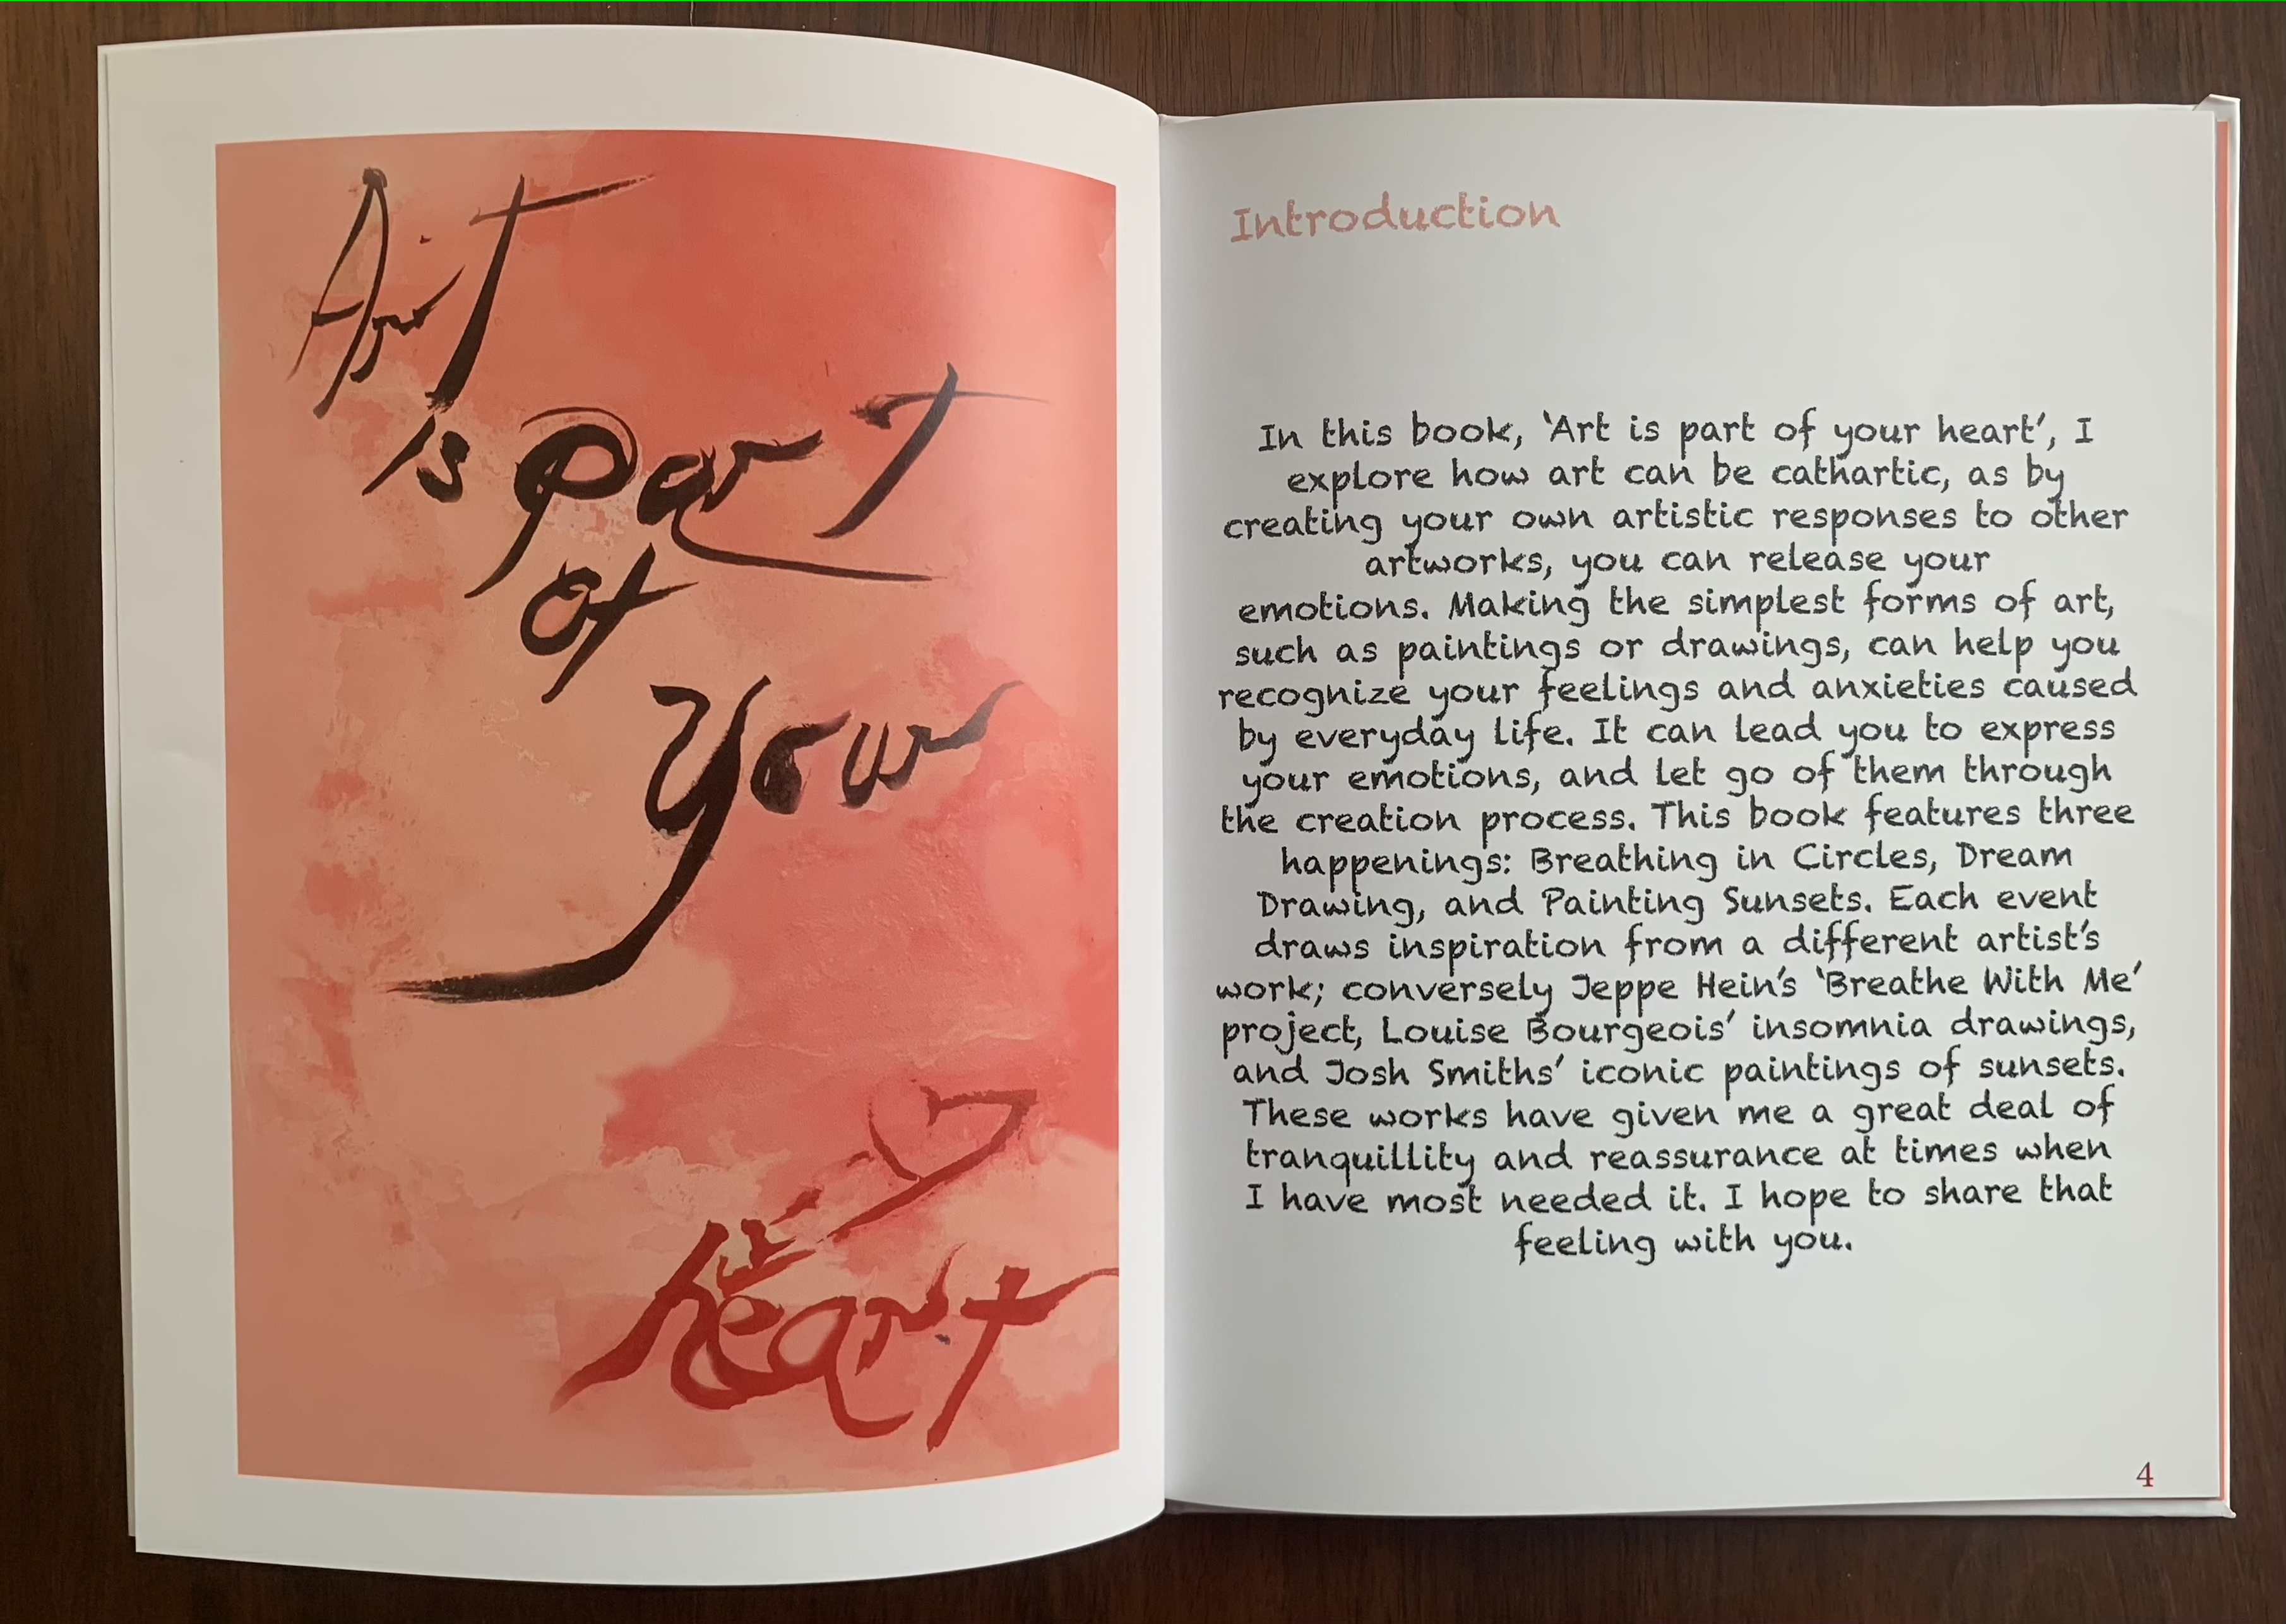 Art
is part
of
your
heart
Introduction
In this book, ‘Art is part of your heart’, I
explore how art can be cathartic, as by
creating your own artistic responses to other
artworks, you can release your
emotions. Making the simplest forms of art,
such as paintings or drawings, can help you
recognize your feelings and anxieties caused
by everyday life. It can lead you to express
your emotions, and let go of them through
the creation process. This book features three
happenings: Breathing in Circles, Dream
Drawing, and Painting Sunsets. Each event
draws inspiration from a different artist’s
work; conversely Jeppe Hein’s ‘Breathe With Me’
project, Louise Bourgeois’ insomnia drawings,
and Josh Smiths’ iconic paintings of sunsets.
These works have given me a great deal of
tranquillity and reassurance at times when
I have most needed it. I hope to share that
feeling with you.
4